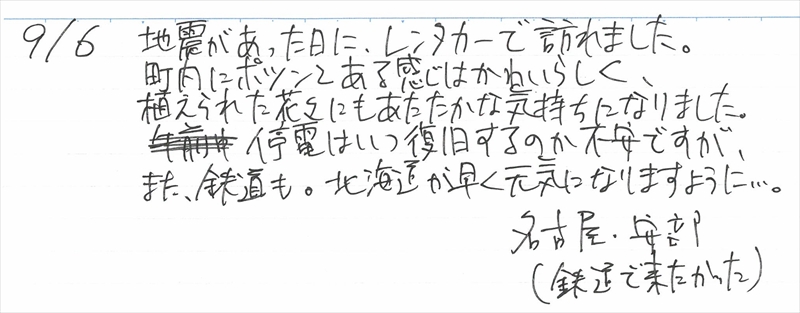 9/6 地震があった日に、レンタカーで訪れました。
町内にポツンとある感じはかわいらしく、
植えられた花々にもあたたかな気持ちになりました。
停電はいつ復旧するのか不安ですが、
また、鉄道も。北海道が早く元気になりますように…。
名古屋・安部
(鉄道で来たかった)